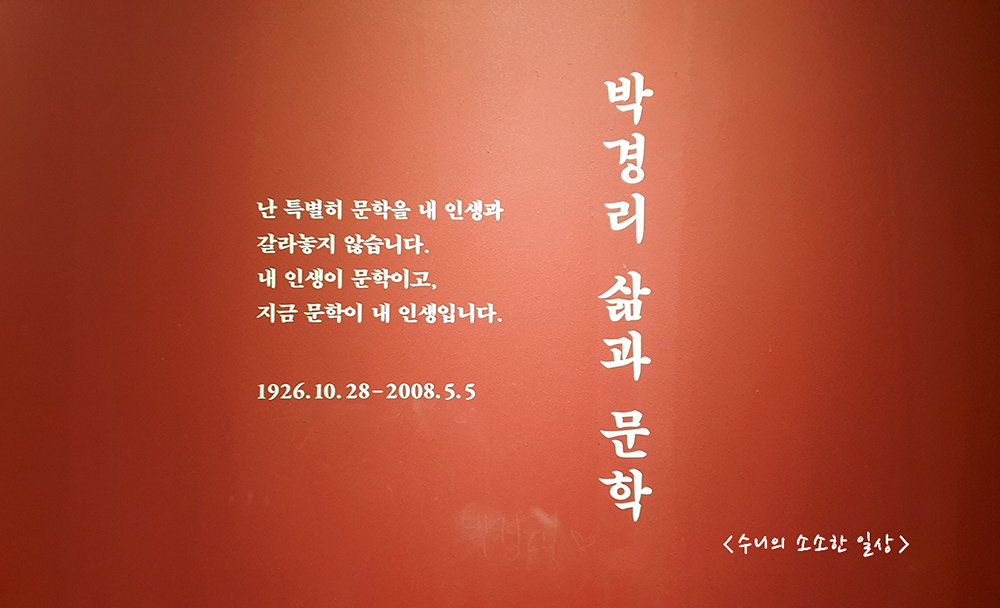 박경리 삶과 문학
난 특별히 문학을 내 인생과
갈라놓지 않습니다.
내 인생이 문학이고,
지금 문학이 내 인생입니다.
1926.10.28-2008.5.5
<수니의 소소한 일상>